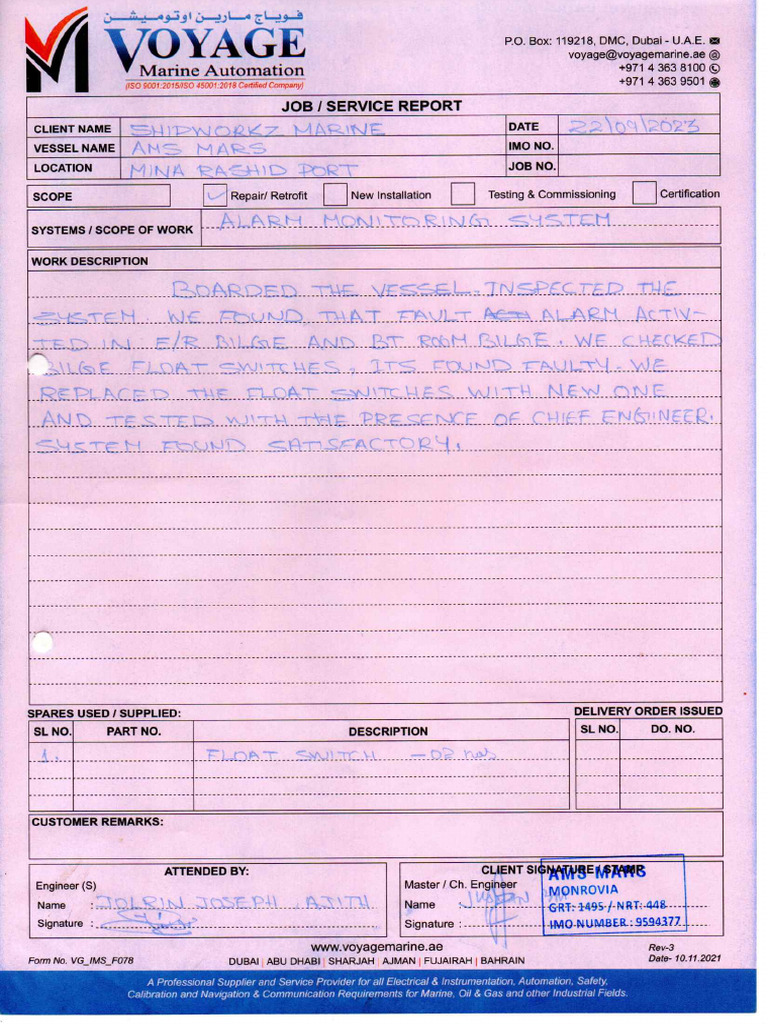 فوياج مارين اوتوميشن
VOYAGE
Marine Automation
(ISO 9001:2015/ISO 45001:2018 Certified Company)
P.O. Box: 119218, DMC, Dubai - U.A.E.
voyage@voyagemarine.ae
+971 4 363 8100
+971 4 363 9501
JOB / SERVICE REPORT
CLIENT NAME SHIPWORKZ MARINE DATE 22/09/2023
VESSEL NAME AMS MARS IMO NO.
LOCATION MINA RASHID PORT JOB NO.
SCOPE Repair/ Retrofit New Installation Testing & Commissioning Certification
SYSTEMS / SCOPE OF WORK ALARM MONITORING SYSTEM
WORK DESCRIPTION
BOARDED THE VESSEL. INSPECTED THE
SYSTEM. WE FOUND THAT FAULT ALARM ACTIV-
TED IN: E/R BILGE AND BT ROOM BILGE. WE CHECKED
BILGE FLOAT SWITCHES. ITS FOUND FAULTY. WE
REPLACED THE FLOAT SWITCHES WITH NEW ONE
AND TESTED WITH THE PRESENCE OF CHIEF ENGINEER.
SYSTEM FOUND SATISFACTORY.
SPARES USED / SUPPLIED: DELIVERY ORDER ISSUED
SL NO. PART NO. DESCRIPTION SL NO. DO. NO.
1. FLOAT SWITCH - 02 nos
CUSTOMER REMARKS:
ATTENDED BY: CLIENT SIGNATURE / STAMP
Engineer (S) Master / Ch. Engineer
Name : JOLRIN JOSEPH, AJITH Name :
Signature : Signature :
AMS MARS
MONROVIA
GRT: 1495 / NRT: 448
IMO NUMBER : 9594377
www.voyagemarine.ae
Form No. VG_IMS_F078 DUBAI | ABU DHABI | SHARJAH | AJMAN | FUJAIRAH | BAHRAIN Rev-3
Date- 10.11.2021
A Professional Supplier and Service Provider for all Electrical & Instrumentation, Automation, Safety,
Calibration and Navigation & Communication Requirements for Marine, Oil & Gas and other Industrial Fields.